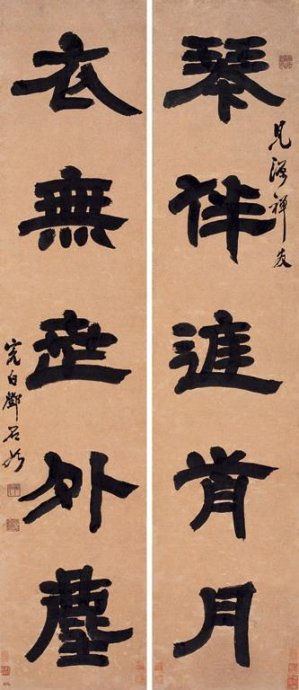 琴伴庭前月
見源禪友
衣無世外塵
完白鄧石如